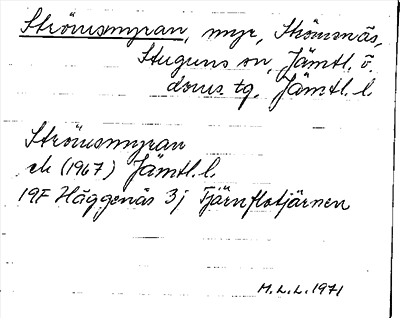 Strömsmyran, myr, Strömsnäs,
Stuguns sn, Jämtl. ö.
doms. tg, Jämtl. l.
Strömsmyran
ek (1967) Jämtl. l.
19F Häggenäs 3j Tjärnflotjärnen
M.L.L. 1971